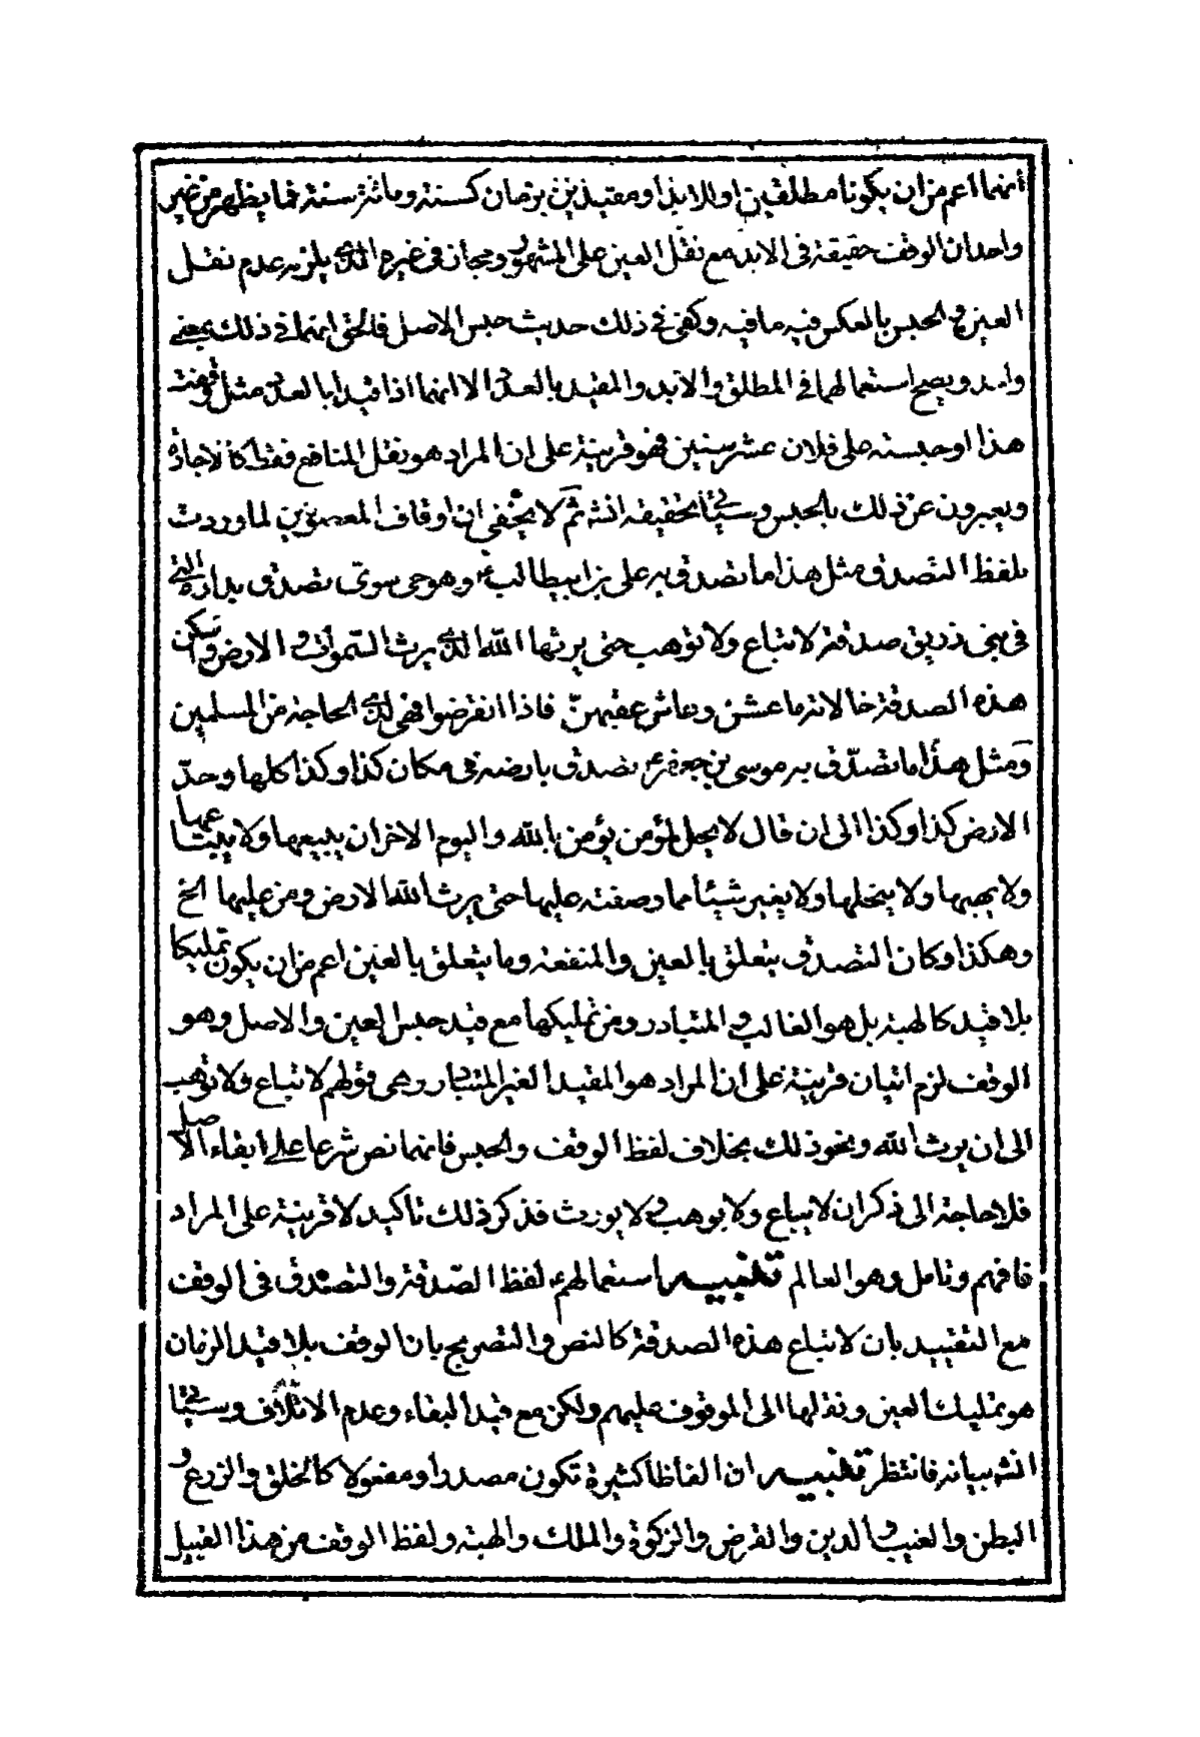 انهما اعم من ان يكونا مطلقين او للابد او مقيدين بزمان كسنة ومائة سنة فما يظهر من غير
واحد ان الوقف حقيقة فى الابد مع نقل العين على المشهور ومجاز فى غيره الذى يلزمه عدم نقل
العين و الحبس بالعكس فيه ما فيه وكفى فى ذلك حديث حبس الاصل فالحق انهما فى ذلك بمعنى
واحد ويصح استعمالهما فى المطلق والابد والمقيد بالعدد الا انهما اذا قيدا بالعدد مثل وقفت
هذا او حبسته على فلان عشر سنين فهو قرينة على ان المراد هو نقل المنافع فقط كالاجارة
ويعبرون عن ذلك بالحبس وسيأتى تحقيقه انشه ثم لا يخفى ان اوقاف المعصومين لما وردت
بلفظ التصدق مثل هذا ما تصدق به على بن ابيطالب ع وهو حى سوى تصدق بداره التى
فى بنى زريق صدقة لا تباع ولا توهب حتى يرثها الله الذى يرث السموات و الارض واسكن
هذه الصدقة خالاته ما عشن وعاش عقبهن فاذا انقرضوا فهى لذى الحاجة من المسلمين
ومثل هذا ما تصدق به موسى بن جعفر ع تصدق بارضه فى مكان كذا وكذا كلها وحد
الارض كذا وكذا الى ان قال لا يحل لمؤمن يؤمن بالله واليوم الاخر ان يبيعها ولا يبتاعها
ولا يهبها ولا ينحلها ولا يغير شيئا مما وصفته عليها حتى يرث الله الارض ومن عليها الخ
وهكذا وكان التصدق يتعلق بالعين والمنفعة وما يتعلق بالعين اعم من ان يكون تمليكا
بلا قيد كالهبة بل هو الغالب و المتبادر ومن تمليكها مع قيد حبس العين والاصل وهو
الوقف لزم اتيان قرينة على ان المراد هو المقيد الغير المتبادر وهى قولهم لا تباع ولا توهب
الى ان يرث الله ونحو ذلك بخلاف لفظ الوقف والحبس فانهما نص شرعا على ابقاء الاصل
فلا حاجة الى ذكر ان لا يباع ولا يوهب و لا يورث فذكر ذلك تاكيد لا قرينة على المراد
فافهم وتامل وهو العالم تنبيه استعمالهم لفظ الصدقة والتصدق فى الوقف
مع التقييد بان لا تباع هذه الصدقة كالنص والتصريح بان الوقف بلا قيد الزمان
هو تمليك العين ونقلها الى الموقوف عليهم ولكن مع قيد البقاء وعدم الاتلاف وسيأتى
انشه بيانه فانتظر تنبيه ان الفاظا كثيرة تكون مصدرا ومفعولا كالخلق والزرع و
البطن والعيب و الدين والقرض والزكوة والملك والهبة ولفظ الوقف من هذا القبيل